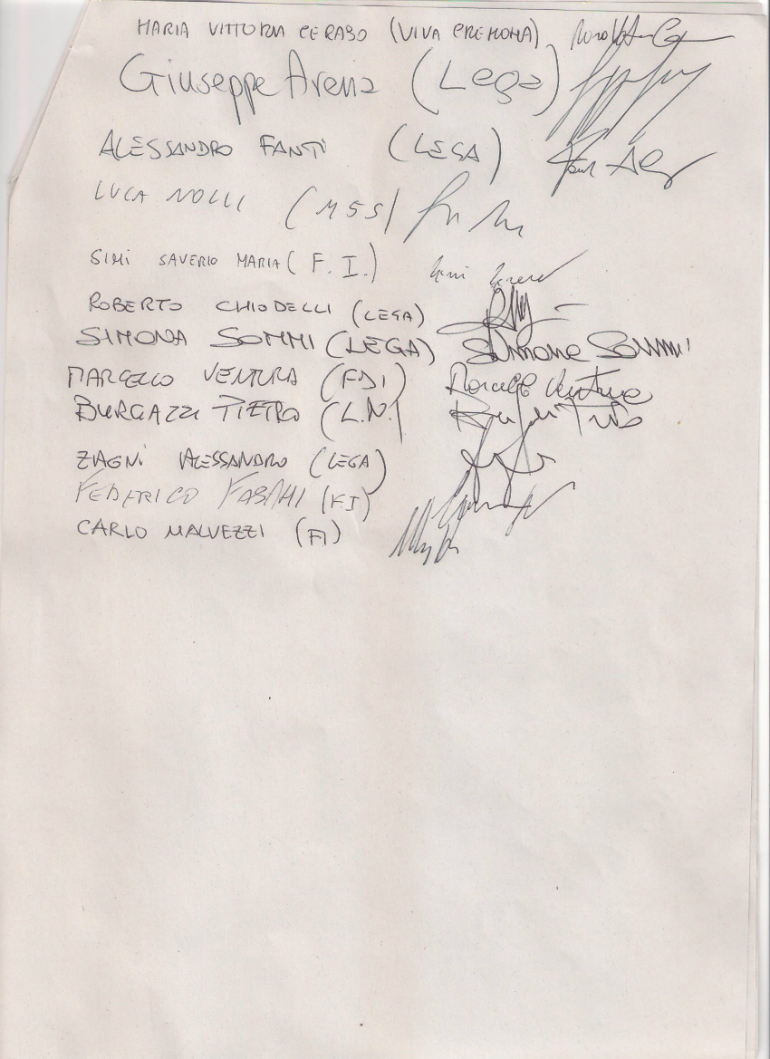 MARIA VITTORIA CERASO (VIVA CREMONA)
Giuseppe Arena (Lega)
ALESSANDRO FANTI (LEGA)
LUCA NOLLI (M5S)
SIMI SAVERIO MARIA (F.I.)
ROBERTO CHIODELLI (LEGA)
SIMONA SOMMI (LEGA) Simona Sommi
MARCELLO VENTURA (FDI) Marcello Ventura
BURGAZZI PIETRO (L.N.)
ZAGNI ALESSANDRO (LEGA)
FEDERICO FASANI (FI)
CARLO MALVEZZI (FI)